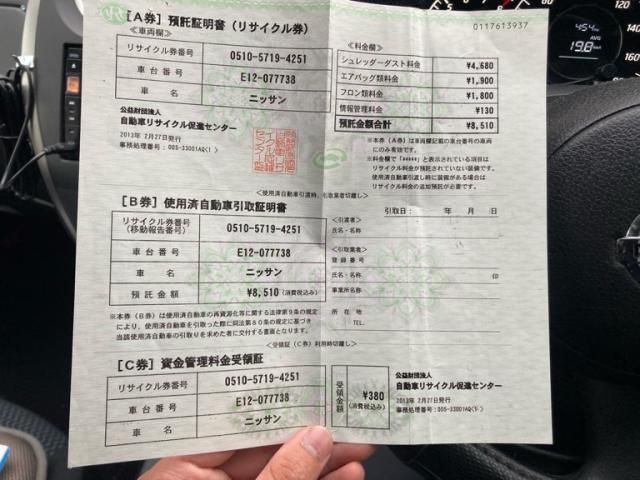 ［A券］預託証明書（リサイクル券）
0117613937
《車両欄》
リサイクル券番号 0510-5719-4251
車台番号 E12-077738
車名 ニッサン
《料金欄》
シュレッダーダスト料金 ¥4,680
エアバッグ類料金 ¥1,900
フロン類料金 ¥1,800
情報管理料金 ¥130
預託金額合計 ¥8,510
公益財団法人
自動車リサイクル促進センター
2013年 2月27日発行
事務処理番号：005-33001AQ(ﾘ)
※本券（A券）は車両欄記載の車台番号の車両
にのみ有効です。
※料金欄で「*****」と表示されている項目は
リサイクル料金が預託されていない装備です。
使用済自動車引渡し時に装備がある場合は
リサイクル料金の追加預託が必要です。
<使用済自動車引渡時、引取業者切離し>
［B券］使用済自動車引取証明書
引取日： 年 月 日
リサイクル券番号
（移動報告番号） 0510-5719-4251
車台番号 E12-077738
車名 ニッサン
預託金額 ¥8,510（消費税込み）
<引渡者>
氏名・名称
<引取業者>
登録番号
氏名・名称 印
事業所名称
所在地
TEL.
※本券（B券）は使用済自動車の再資源化等に関する法律第９条の規定
により、使用済自動車を引取った際に同法第８０条の規定に基づき
当該使用済自動車の引取りを求めた者に交付する書面となります。
<受領証（C券）利用時切離し>
［C券］資金管理料金受領証
リサイクル券番号 0510-5719-4251
車台番号 E12-077738
車名 ニッサン
受領金額 ¥380
（消費税込み）
公益財団法人
自動車リサイクル促進センター
2013年 2月27日発行
事務処理番号：005-33001AQ(ﾘ)
454
19.8
km/L
120
140
160